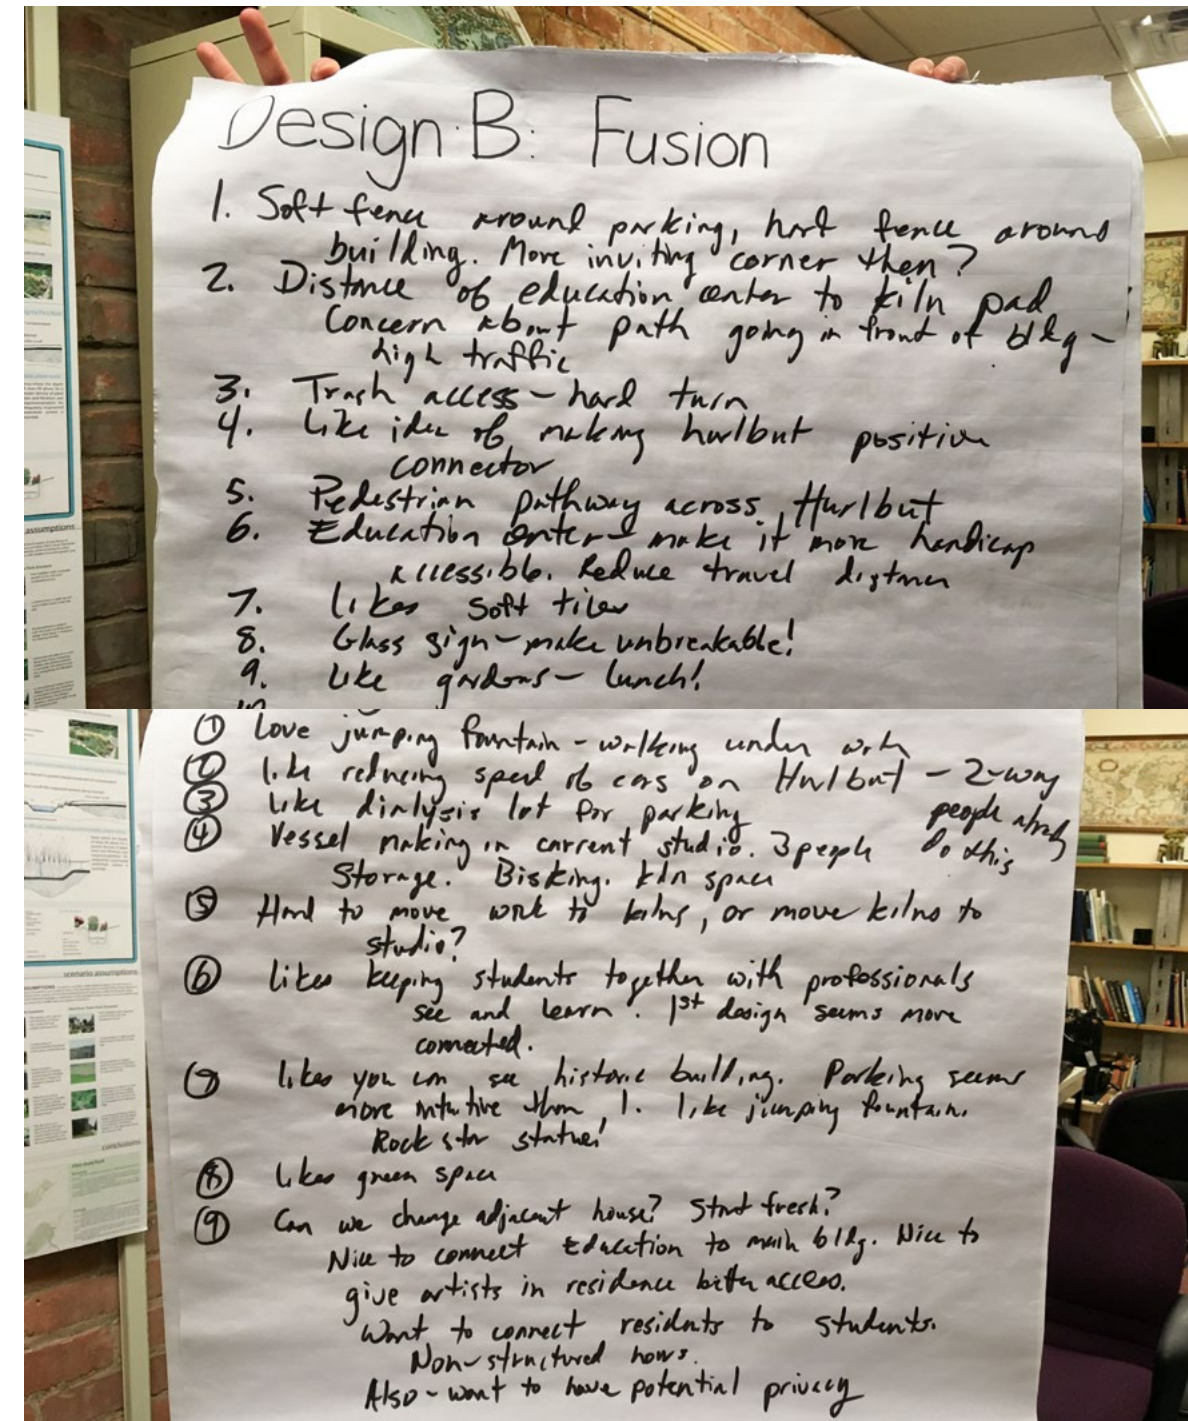 Design B: Fusion
1. Soft fence around parking, hard fence around
building. More inviting corner then?
2. Distance of education center to kiln pad
Concern about path going in front of bldg –
high traffic
3. Trash access – hard turn
4. Like idea of making hurlbut positive
connector
5. Pedestrian pathway across Hurlbut
6. Education center – make it more handicap
accessible. Reduce travel distance
7. likes soft tiles
8. Glass sign – make unbreakable!
9. Like gardens – lunch!
10.
① Love jumping fountain – walking under water
② like reducing speed of cars on Hurlbut – 2-way
people already
do this
③ like dialysis lot for parking
④ Vessel making in current studio. 3 people
Storage. Bisking. kiln space
⑤ Hard to move work to kilns, or move kilns to
studio?
⑥ likes keeping students together with professionals
see and learn. 1st design seems more
connected.
⑦ likes you can see historic building. Parking seems
more intuitive than 1. like jumping fountain.
Rock star statue!
⑧ likes green space
⑨ Can we change adjacent house? Start fresh?
Nice to connect Education to main bldg. Nice to
give artists in residence better access.
Want to connect residents to students.
Non-structured hours.
Also – want to have potential privacy
assumptions
scenario assumptions
conclusions